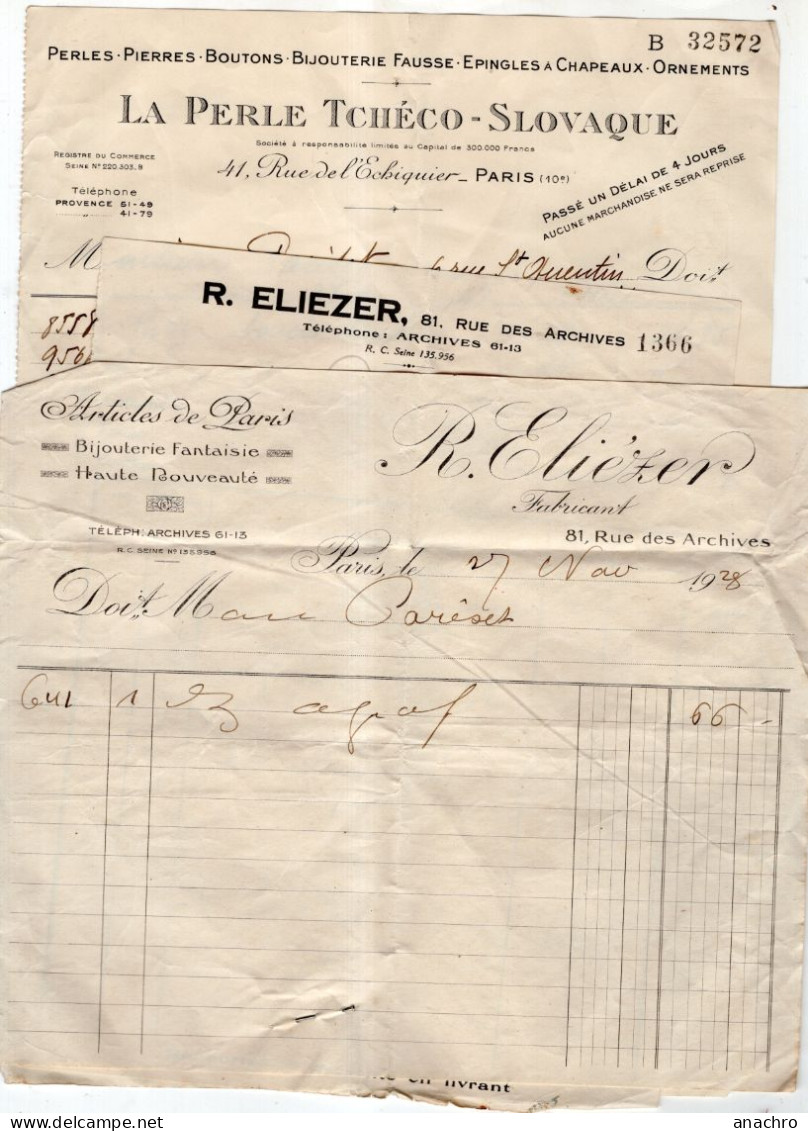 B 32572
PERLES · PIERRES · BOUTONS · BIJOUTERIE FAUSSE · EPINGLES À CHAPEAUX · ORNEMENTS
LA PERLE TCHÉCO-SLOVAQUE
Société à responsabilité limitée au Capital de 300.000 Francs
REGISTRE DU COMMERCE
SEINE No 220.303.B
41, Rue de l'Echiquier_ PARIS (10e)
Téléphone
PROVENCE 51-49
„ 41-79
PASSÉ UN DÉLAI DE 4 JOURS
AUCUNE MARCHANDISE NE SERA REPRISE
M rue St Quentin Doit
8558
956
R. ELIEZER, 81, RUE DES ARCHIVES 1366
Téléphone: ARCHIVES 61-13
R. C. Seine 135.956
Articles de Paris
Bijouterie Fantaisie
Haute Nouveauté
TÉLÉPH: ARCHIVES 61-13
R.C. SEINE No 135.956
R. Eliézer
Fabricant
81, Rue des Archives
Paris, le 27 Nov 1928
Doit M
1 66 -
en livrant
delcampe.net
anachro